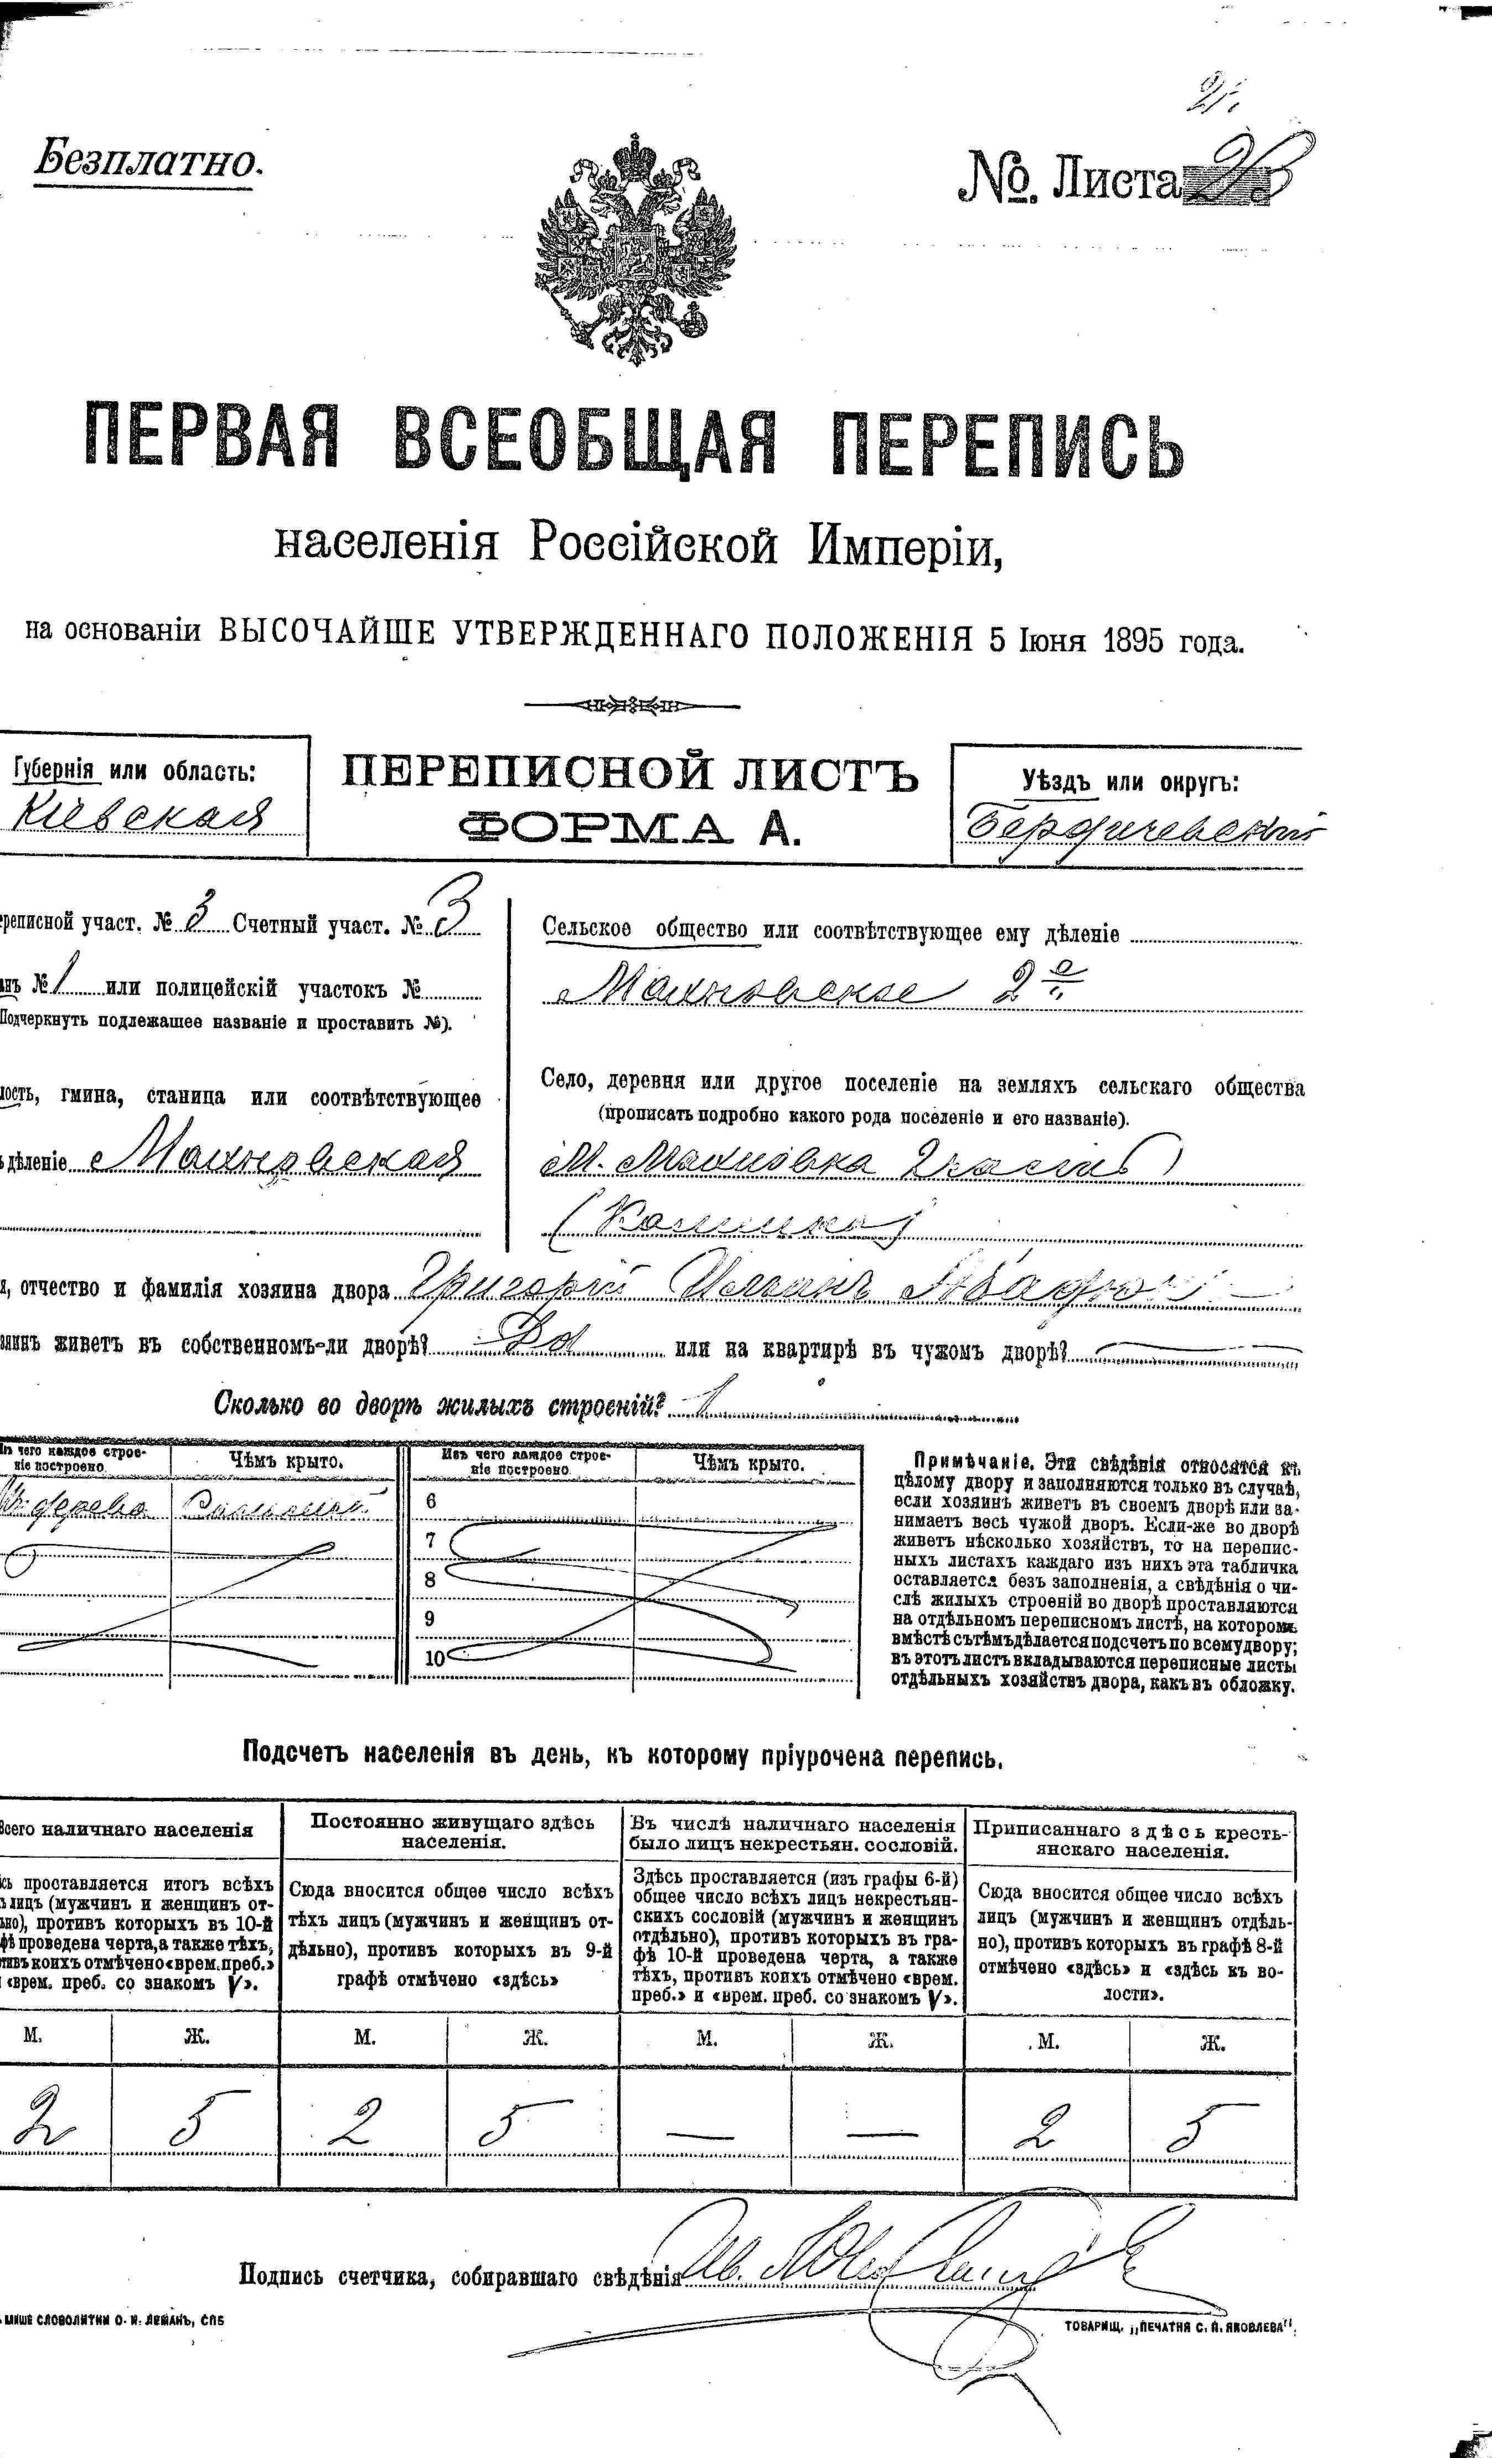 21.
Безплатно.
№. Листа 23
ПЕРВАЯ ВСЕОБЩАЯ ПЕРЕПИСЬ
населенія Россійской Имперіи,
на основаніи ВЫСОЧАЙШЕ УТВЕРЖДЕННАГО ПОЛОЖЕНІЯ 5 Іюня 1895 года.
Губернія или область:
Кіевская
ПЕРЕПИСНОЙ ЛИСТЪ
ФОРМА А.
Уѣздъ или округъ:
Бердичевскій
реписной участ. № 3 Счетный участ. № 3
нъ № 1 или полицейскій участокъ №
Подчеркнуть подлежашее названіе и проставить №).
ость, гмина, станица или соотвѣтствующее
дѣленіе Махновская
Сельское общество или соотвѣтствующее ему дѣленіе
Махновское 2е
Село, деревня или другое поселеніе на земляхъ сельскаго общества
(прописать подробно какого рода поселеніе и его названіе).
М. Махновка 2 часть
я, отчество и фамилія хозяина двора Григорій
зяинъ живетъ въ собственномъ-ли дворѣ? Да или на квартирѣ въ чужомъ дворѣ? —
Сколько во дворѣ жилыхъ строеній? 1
Изъ чего каждое строе-
ніе построено
Чѣмъ крыто.
Изъ чего каждое строе-
ніе построено
Чѣмъ крыто.
дерева Соломой
6
7
8
9
10
Примѣчаніе. Эти свѣдѣнія относятся къ
цѣлому двору и заполняются только въ случаѣ,
если хозяинъ живетъ въ своемъ дворѣ или за-
нимаетъ весь чужой дворъ. Если-же во дворѣ
живетъ нѣсколько хозяйствъ, то на перепис-
ныхъ листахъ каждаго изъ нихъ эта табличка
оставляется безъ заполненія, а свѣдѣнія о чи-
слѣ жилыхъ строеній во дворѣ проставляются
на отдѣльномъ переписномъ листѣ, на которомъ
вмѣстѣ съ тѣмъ дѣлается подсчетъ по всему двору;
въ этотъ листъ вкладываются переписные листы
отдѣльныхъ хозяйствъ двора, какъ въ обложку.
Подсчетъ населенія въ день, къ которому пріурочена перепись.
Всего наличнаго населенія
сь проставляется итогъ всѣхъ
ъ лицъ (мужчинъ и женщинъ от-
ьно), противъ которыхъ въ 10-й
фѣ проведена черта, а также тѣхъ,
тивъ коихъ отмѣчено «врем. преб.»
«врем. преб. со знакомъ V».
Постоянно живущаго здѣсь
населенія.
Сюда вносится общее число всѣхъ
тѣхъ лицъ (мужчинъ и женщинъ от-
дѣльно), противъ которыхъ въ 9-й
графѣ отмѣчено «здѣсь»
Въ числѣ наличнаго населенія
было лицъ некрестьян. сословій.
Здѣсь проставляется (изъ графы 6-й)
общее число всѣхъ лицъ некрестьян-
скихъ сословій (мужчинъ и женщинъ
отдѣльно), противъ которыхъ въ гра-
фѣ 10-й проведена черта, а также
тѣхъ, противъ коихъ отмѣчено «врем.
преб.» и «врем. преб. со знакомъ V».
Приписаннаго здѣсь кресть-
янскаго населенія.
Сюда вносится общее число всѣхъ
лицъ (мужчинъ и женщинъ отдѣль-
но), противъ которыхъ въ графѣ 8-й
отмѣчено «здѣсь» и «здѣсь къ во-
лости».
М. Ж. М. Ж. М. Ж. М. Ж.
2 5 2 5 — — 2 5
Подпись счетчика, собиравшаго свѣдѣнія Ив.
МИШЕ СЛОВОЛИТНИ О. И. ЛЕМАНЪ, СПБ
ТОВАРИЩ. „ПЕЧАТНЯ С. П. ЯКОВЛЕВА".